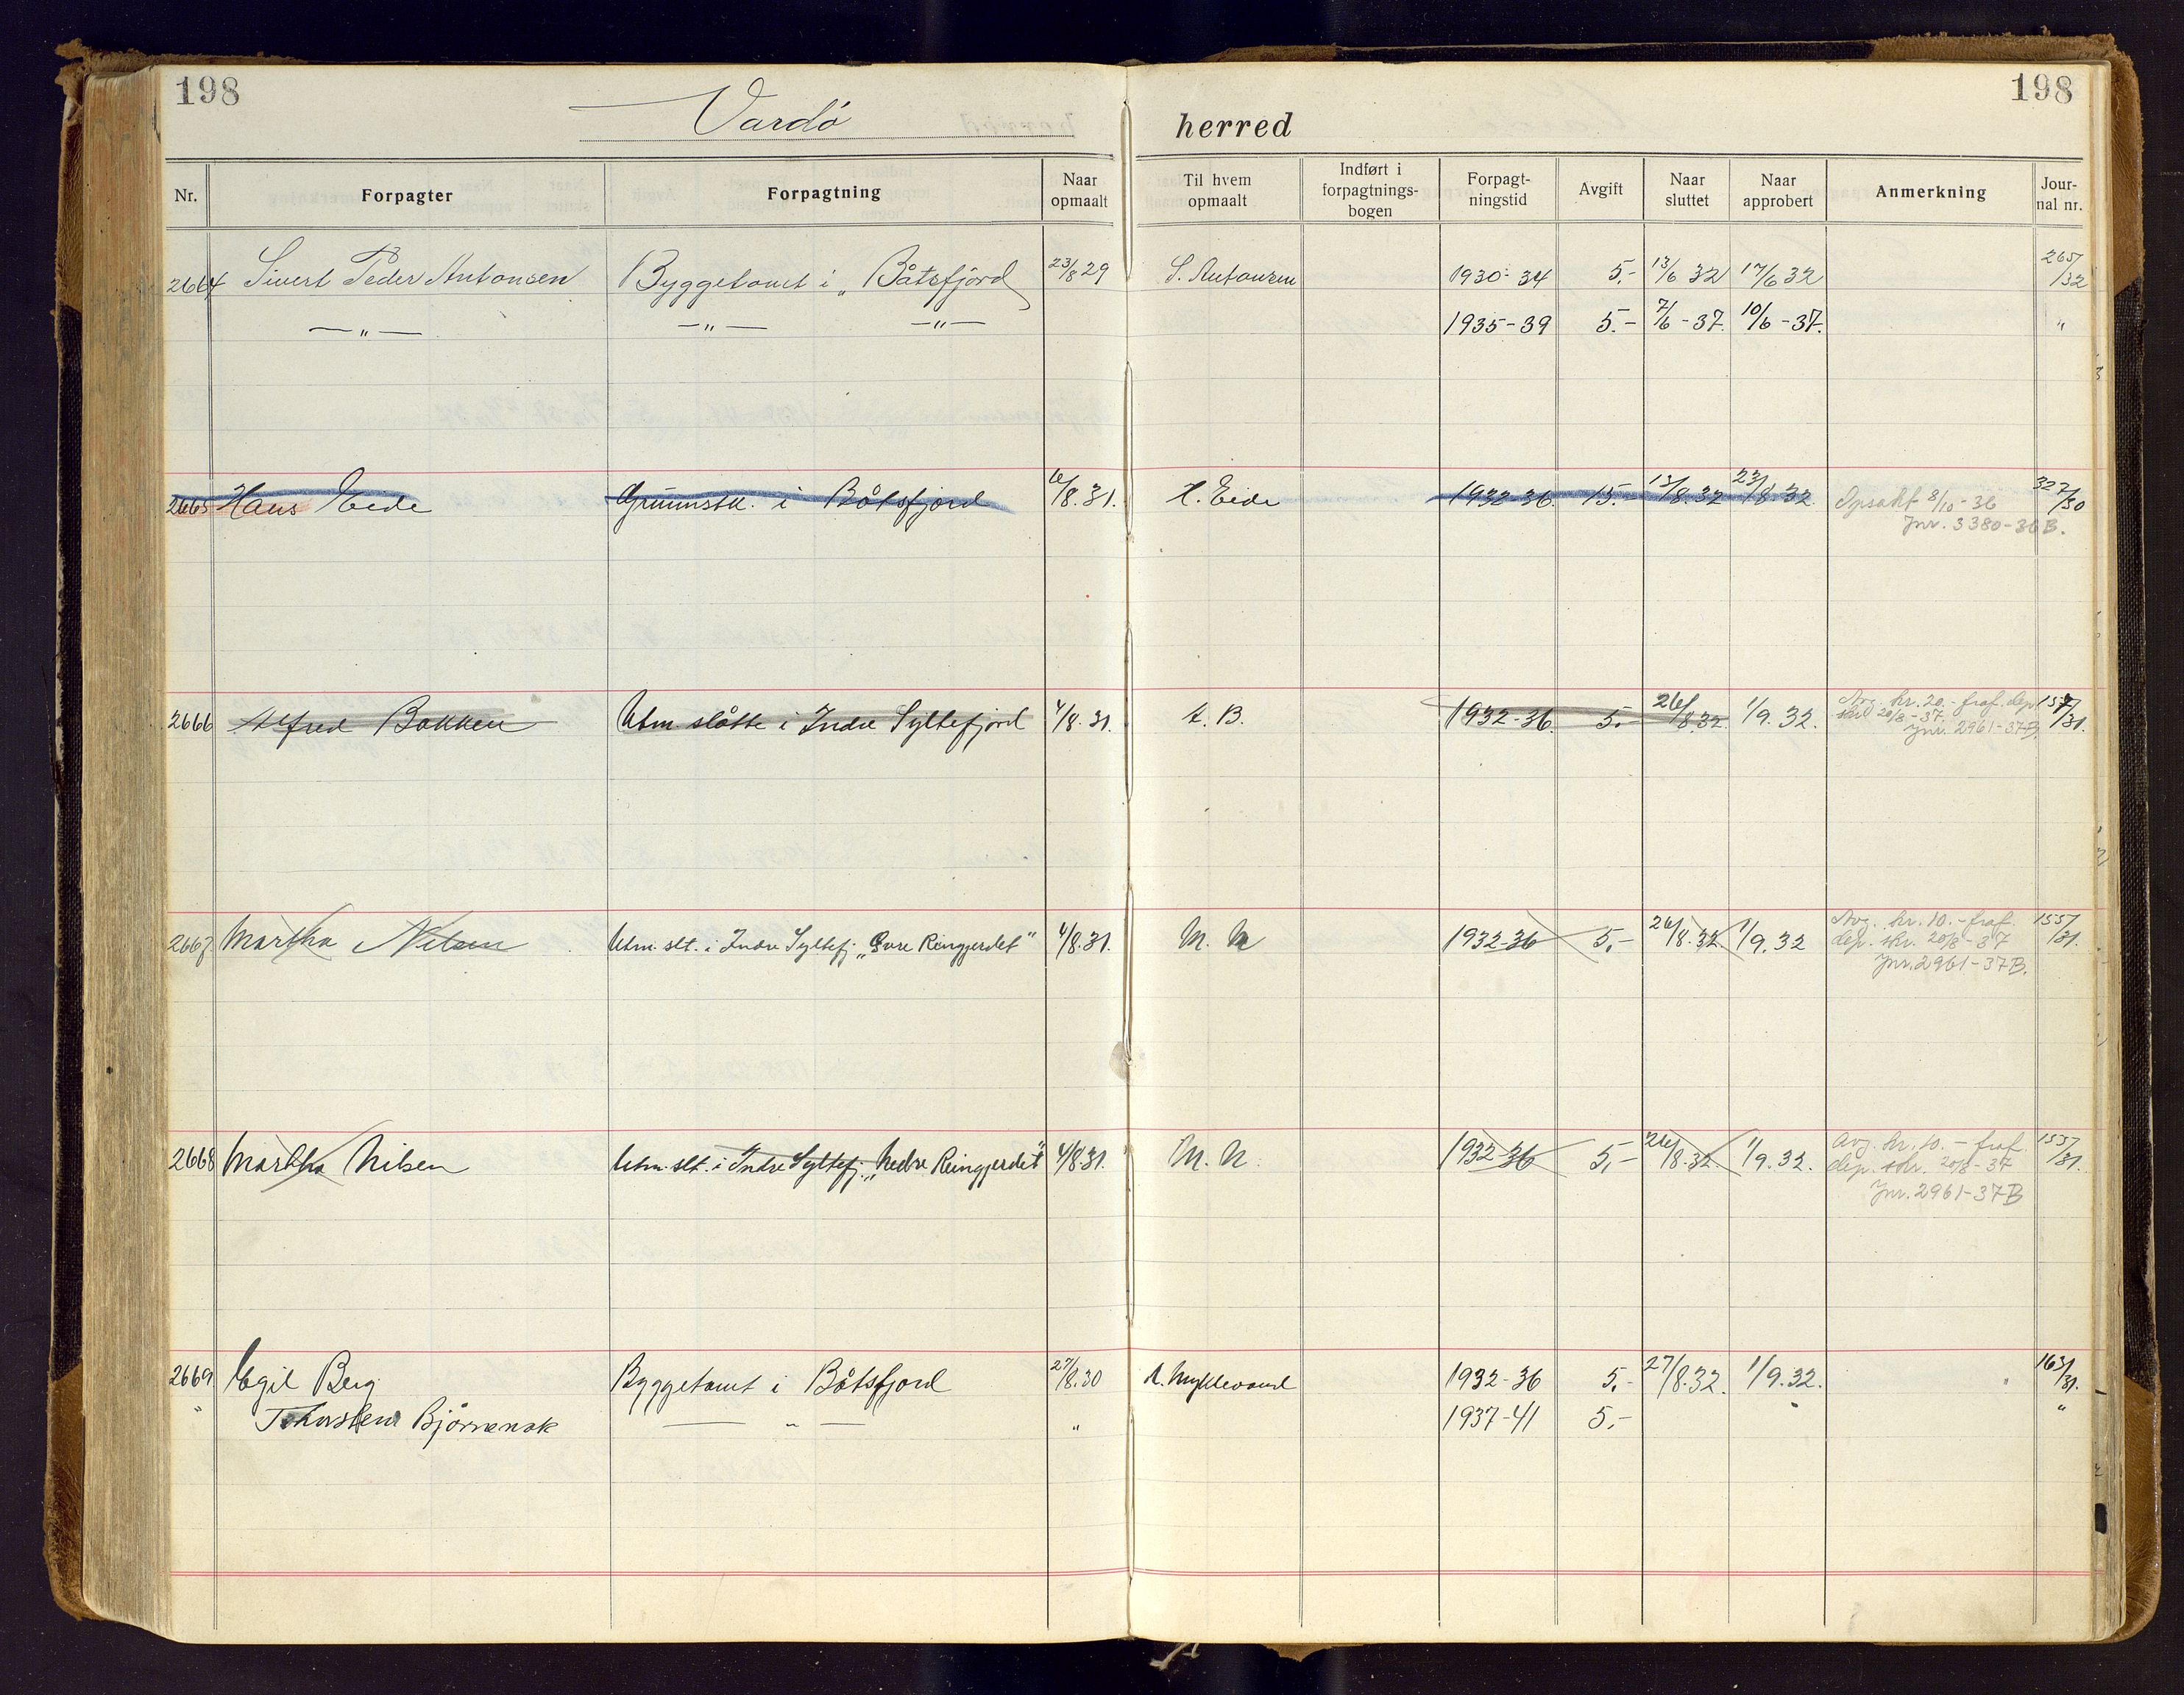 198
Vardö herred
198
Nr. Forpagter Forpagtning Naar opmaalt Til hvem opmaalt Indført i forpagtnings-bogen Forpagt-ningstid Avgift Naar sluttet Naar approbert Anmerkning Jour-nal nr.
2664 Sivert Peder Antonsen Byggetomt i „Båtsfjord 23/8 29 S. Antonsen 1930-34 5.- 13/6 32 17/6 32 265/32
—„— —„— —„— 1935-39 5.- 7/6-37. 10/6-37. "
2665 Hans Eide Grunnstk. i Båtsfjord 6/8.31. H. Eide 1932-36. 15.- 13/8.32 23/8.32 Opsakt 8/10-36 327/30
Jnr. 3380-36B.
2666 Alfred Bakken Utm slåtte i Indre Syltefjord 4/8.31. A. B. 1932-36. 5.- 26/8.32. 1/9.32. Avg. kr. 20.- fraf. dep. 157/31.
skr. 20/8-37.
Jnr. 2961-37B.
2667 Martha Nilsen Utm. slt. i Indre Syltefj. „Övre Reingjerdet" 4/8.31. M. N 1932-36 5,- 26/8.32. 1/9.32 Avg. kr. 10.- fraf. 155/31.
dep. skr. 20/8-37
Jnr. 2961-37B.
2668 Martha Nilsen Utm. slt. i Indre Syltefj. „Nedre Reingjerdet" 4/8.31. M. N. 1932-36 5,- 26/8.32. 1/9.32. Avg. kr. 10.- fraf. 155/31.
dep. skr. 20/8-37
Jnr. 2961-37B
2669 Egil Berg Byggetomt i Båtsfjord 27/8.30 A. Myklevand 1932-36 5,- 27/8.32. 1/9.32. 163/31.
" Thorstein — „ — " 1937-41 5,- "